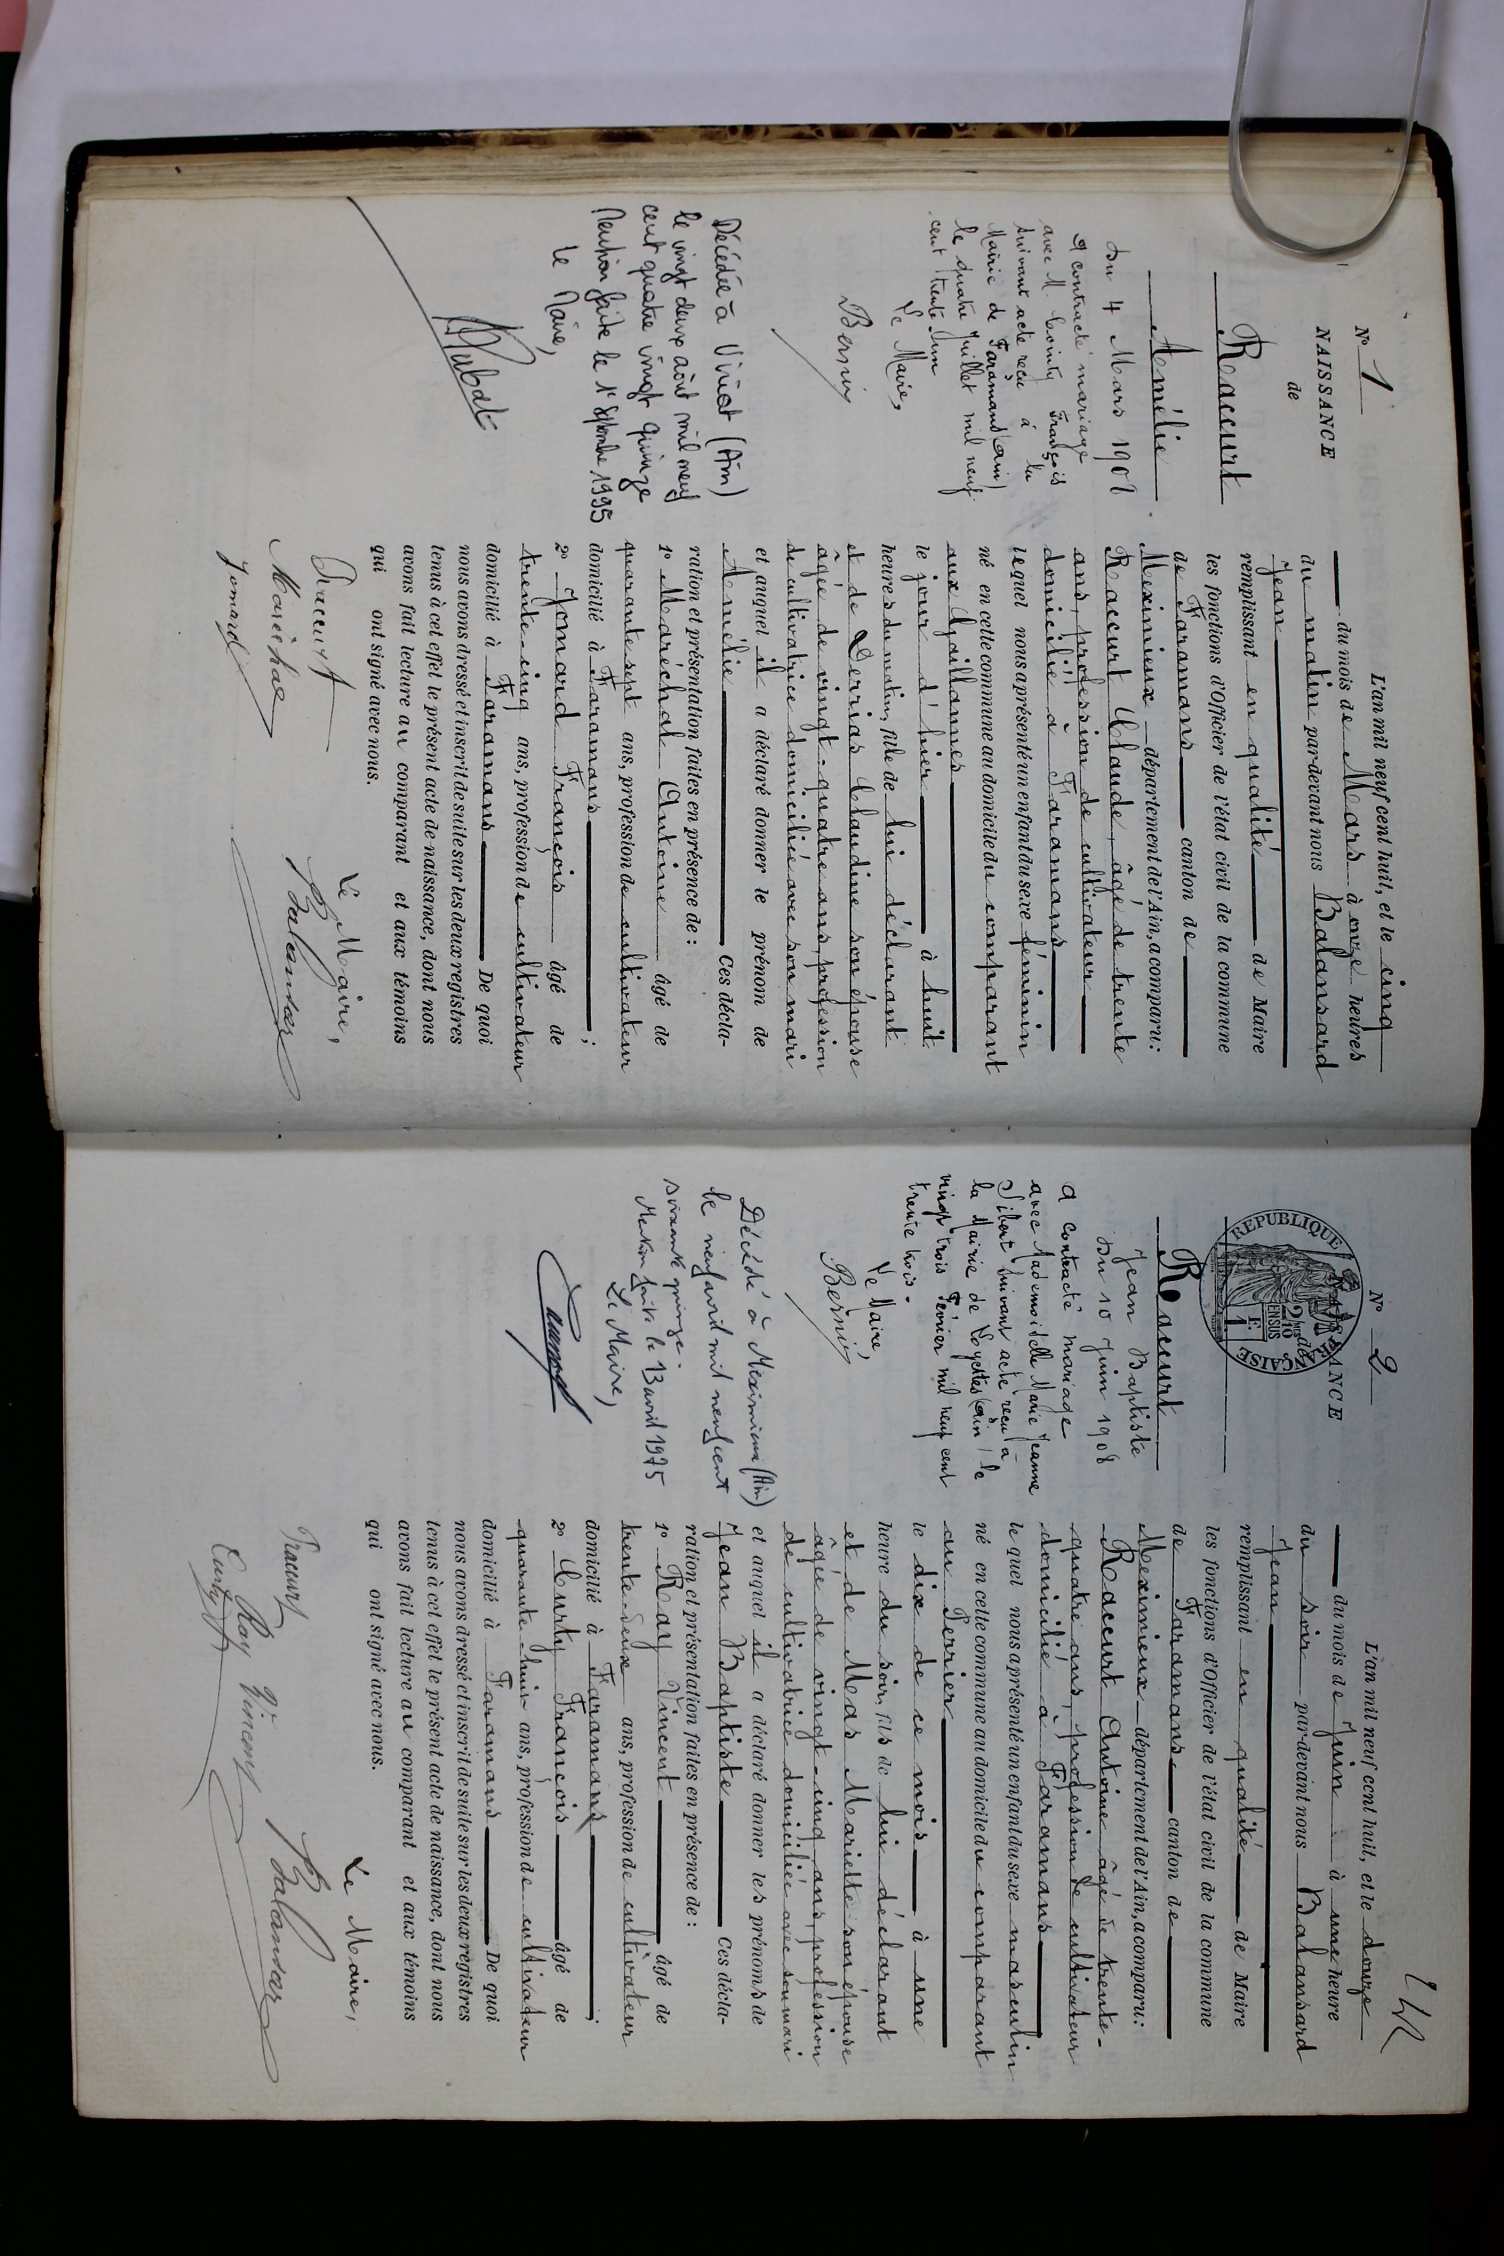 N° 1
NAISSANCE
de
Raccurt
Amélie
Du 4 Mars 1908
a contracté mariage
avec M. Cointy François
suivant acte reçu à la
Mairie de Faramans (ain)
le quatre Juillet mil neuf
cent trente un
Le Maire,
Bernin
Décédée à Viriat (Ain)
le vingt deux août mil neuf
cent quatre vingt quinze
Mention faite le 1er Septembre 1995
Le Maire,
L'an mil neuf cent huit, et le cinq
du mois de Mars à onze heures
du matin par-devant nous Balansard
Jean
remplissant en qualité de Maire
les fonctions d'Officier de l'état civil de la commune
de Faramans canton de
Meximieux département de l'Ain, a comparu:
Raccurt Claude, âgé de trente
ans, profession de cultivateur
domicilié à Faramans
lequel nous a présenté un enfant du sexe féminin
né en cette commune au domicile du comparant
aux Gaillannes
le jour d'hier à huit
heures du matin, fille de lui déclarant
et de Derrias Claudine son épouse
âgée de vingt-quatre ans, profession
de cultivatrice domiciliée avec son mari
et auquel il a déclaré donner le prénom de
Amélie Ces décla-
ration et présentation faites en présence de:
1° Maréchal Antoine âgé de
quarante sept ans, profession de cultivateur
domicilié à Faramans ;
2° Jomard François âgé de
trente-cinq ans, profession de cultivateur
domicilié à Faramans De quoi
nous avons dressé et inscrit de suite sur les deux registres
tenus à cet effet le présent acte de naissance, dont nous
avons fait lecture au comparant et aux témoins
qui ont signé avec nous.
Raccurt
Maréchal
Jomard
Le Maire,
Balansard
N° 2
NAISSANCE
de
REPUBLIQUE FRANÇAISE
Raccurt
Jean Baptiste
Du 10 Juin 1908
a contracté mariage
avec Mademoiselle Marie Jeanne
Sibert suivant acte reçu à
la Mairie de Loyettes (ain) le
vingt trois Février mil neuf cent
trente trois.
Le Maire,
Bernin
Décédé à Meximieux (Ain)
le neuf avril mil neuf cent
soixante quinze.
Mention faite le 13 avril 1975
Le Maire,
L'an mil neuf cent huit, et le douze
du mois de Juin à une heure
du soir par-devant nous Balansard
Jean
remplissant en qualité de Maire
les fonctions d'Officier de l'état civil de la commune
de Faramans canton de
Meximieux département de l'Ain, a comparu:
Raccurt Antoine âgé de trente-
quatre ans, profession de cultivateur
domicilié à Faramans
lequel nous a présenté un enfant du sexe masculin
né en cette commune au domicile du comparant
au Perrier
le dix de ce mois à une
heure du soir, fils de lui déclarant
et de Mas Mariette son épouse
âgée de vingt-cinq ans, profession
de cultivatrice domiciliée avec son mari
et auquel il a déclaré donner les prénoms de
Jean Baptiste Ces décla-
ration et présentation faites en présence de:
1° Ray Vincent âgé de
trente-deux ans, profession de cultivateur
domicilié à Faramans ;
2° Curty François âgé de
quarante-huit ans, profession de cultivateur
domicilié à Faramans De quoi
nous avons dressé et inscrit de suite sur les deux registres
tenus à cet effet le présent acte de naissance, dont nous
avons fait lecture au comparant et aux témoins
qui ont signé avec nous.
Raccurt
Ray Vincent
Curty
Le Maire,
Balansard